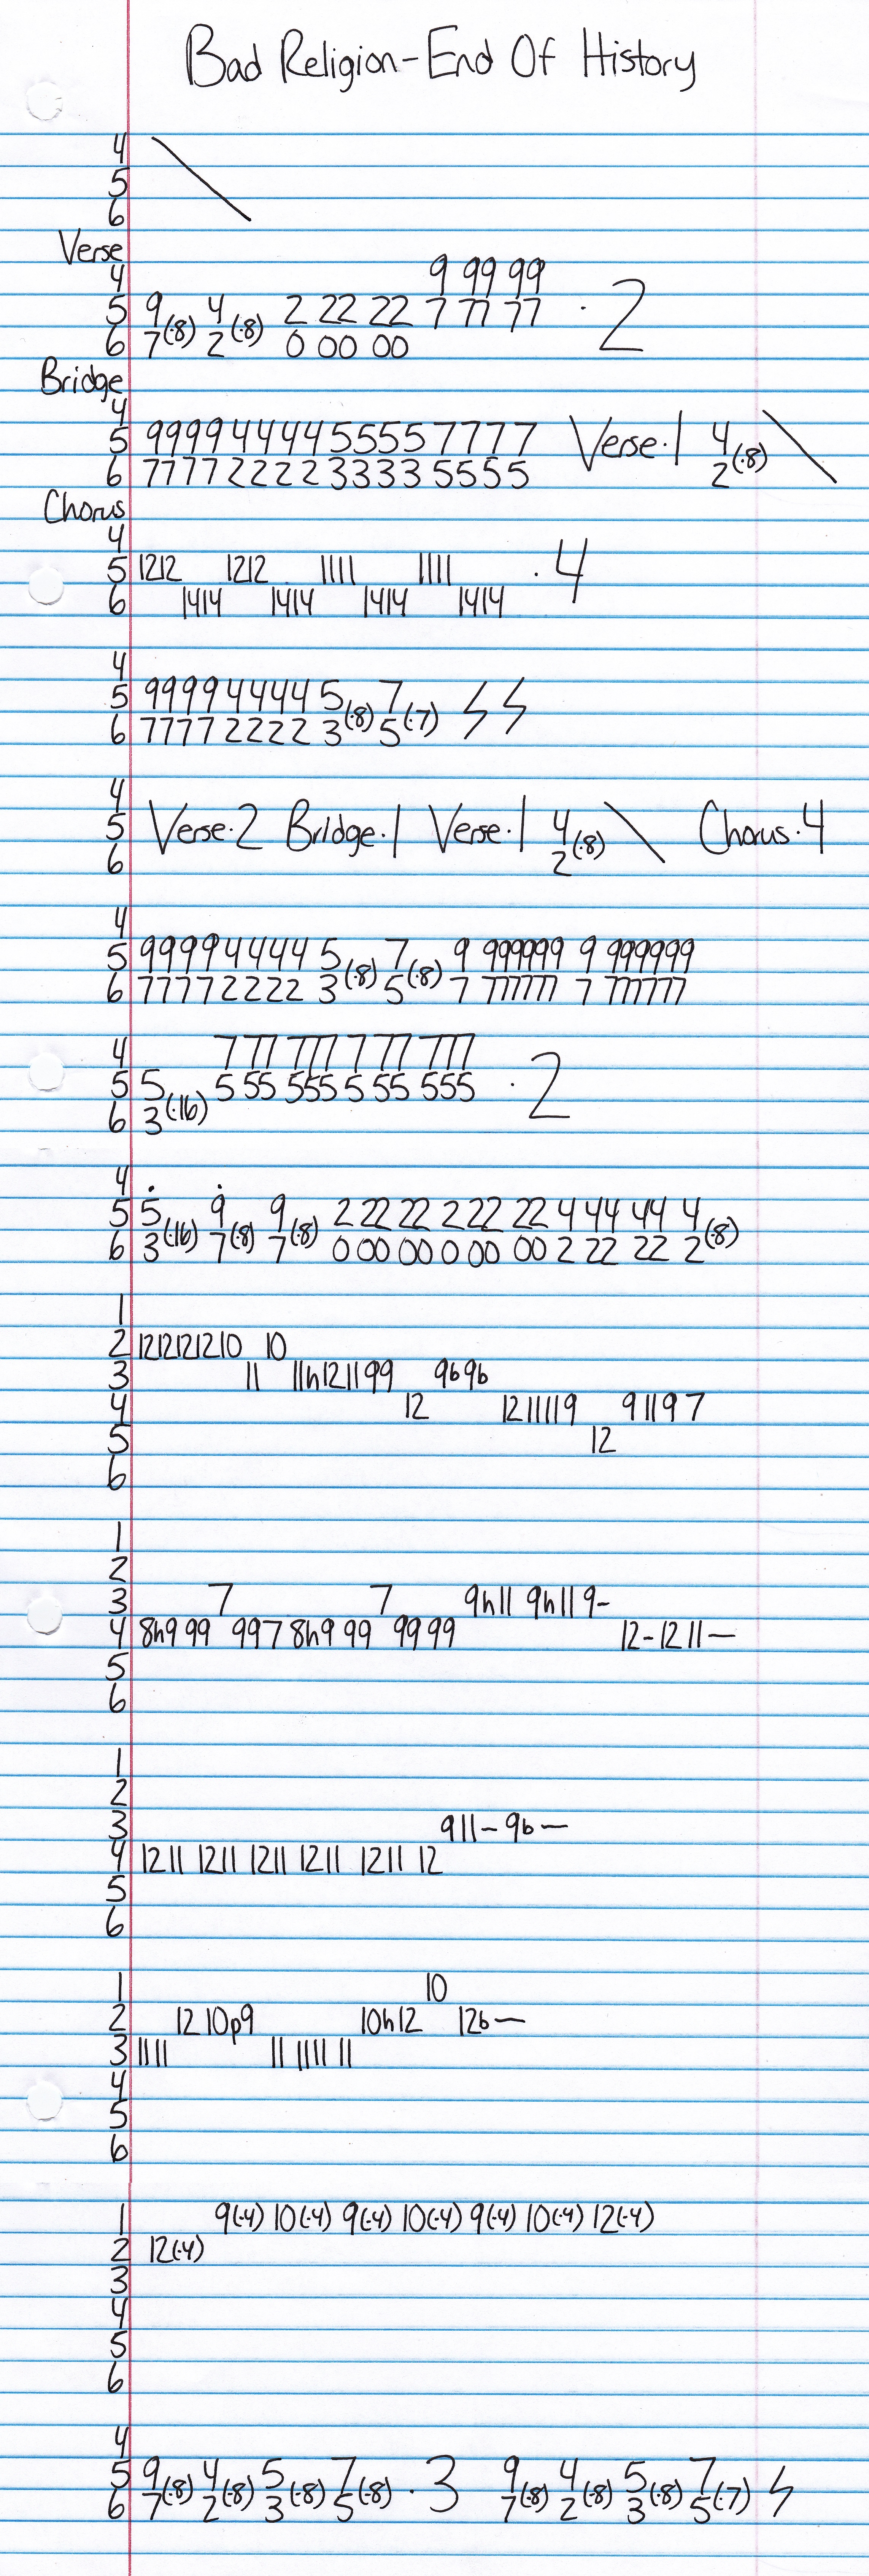 Bad Religion-End Of History
4
5
6
Verse
4 9 99 99
5 9 4 2 22 22 7 77 77 · 2
6 7(·8) 2(·8) 0 00 00
Bridge
4
5 9999 4444 5555 7777 Verse·1 4
6 7777 2222 3333 5555 2(·8)
Chorus
4
5 1212 1212 1111 1111 ·4
6 1414 1414 1414 1414
4
5 9999 4444 5 7
6 7777 2222 3(·8) 5(·7)
4
5 Verse·2 Bridge·1 Verse·1 4 Chorus·4
6 2(·8)
4
5 9999 4444 5 7 9 999999 9 999999
6 7777 2222 3(·8) 5(·8) 7 777777 7 777777
4 7 77 777 7 77 777
5 5 5 55 555 5 55 555 · 2
6 3(·16)
4
5 5 9 9 2 22 22 2 22 22 4 44 44 4
6 3(·16) 7(·8) 7(·8) 0 00 00 0 00 00 2 22 22 2(·8)
1
2 1212121210 10
3 11 11h121199 9b9b
4 12 1211119 91197
5 12
6
1
2
3 7 7 9h11 9h119-
4 8h9 99 997 8h9 99 9999 12-1211—
5
6
1
2
3 911-9b—
4 1211 1211 1211 1211 1211 12
5
6
1 10
2 12 10p9 10h12 12b—
3 1111 11 1111 11
4
5
6
1 9(·4) 10(·4) 9(·4) 10(·4) 9(·4) 10(·4) 12(·4)
2 12(·4)
3
4
5
6
4
5 9 4 5 7 ·3 9 4 5 7
6 7(·8) 2(·8) 3(·8) 5(·8) 7(·8) 2(·8) 3(·8) 5(·7)